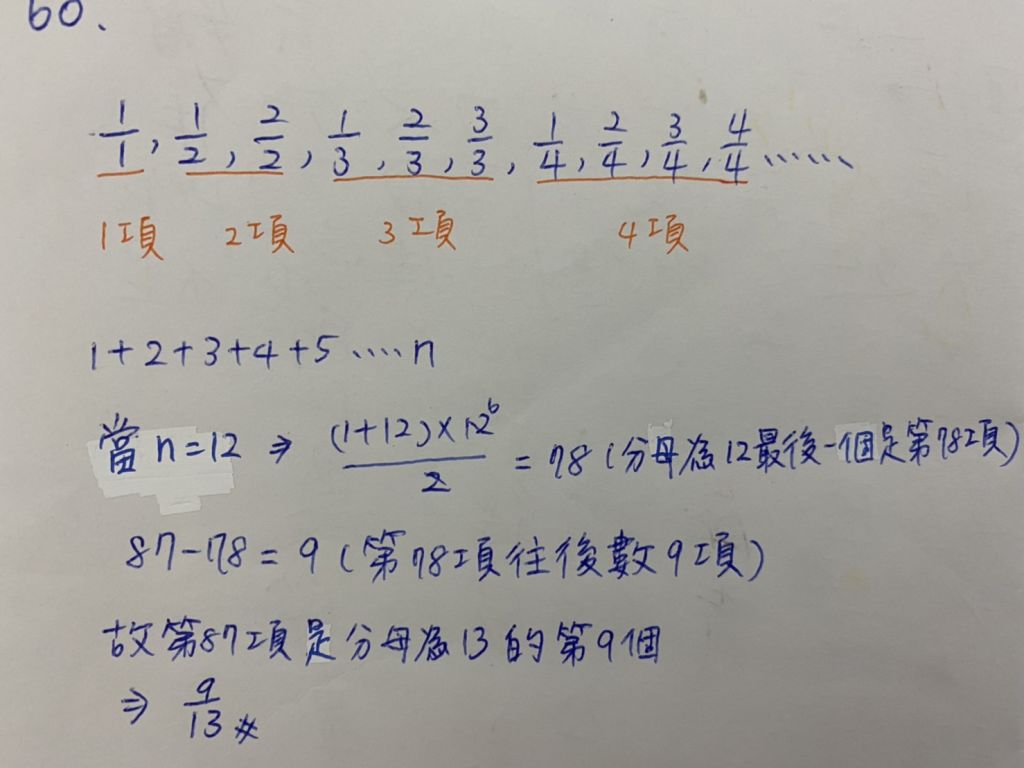 60.
1/1, 1/2, 2/2, 1/3, 2/3, 3/3, 1/4, 2/4, 3/4, 4/4, ......
1項 2項 3項 4項
1+2+3+4+5‥‥n
當 n=12 ⇒ (1+12)×12⁶/2 = 78 (分母為12最後一個是第78項)
87-78=9 (第78項往後數9項)
故第87項是分母為13的第9個
⇒ 9/13 #